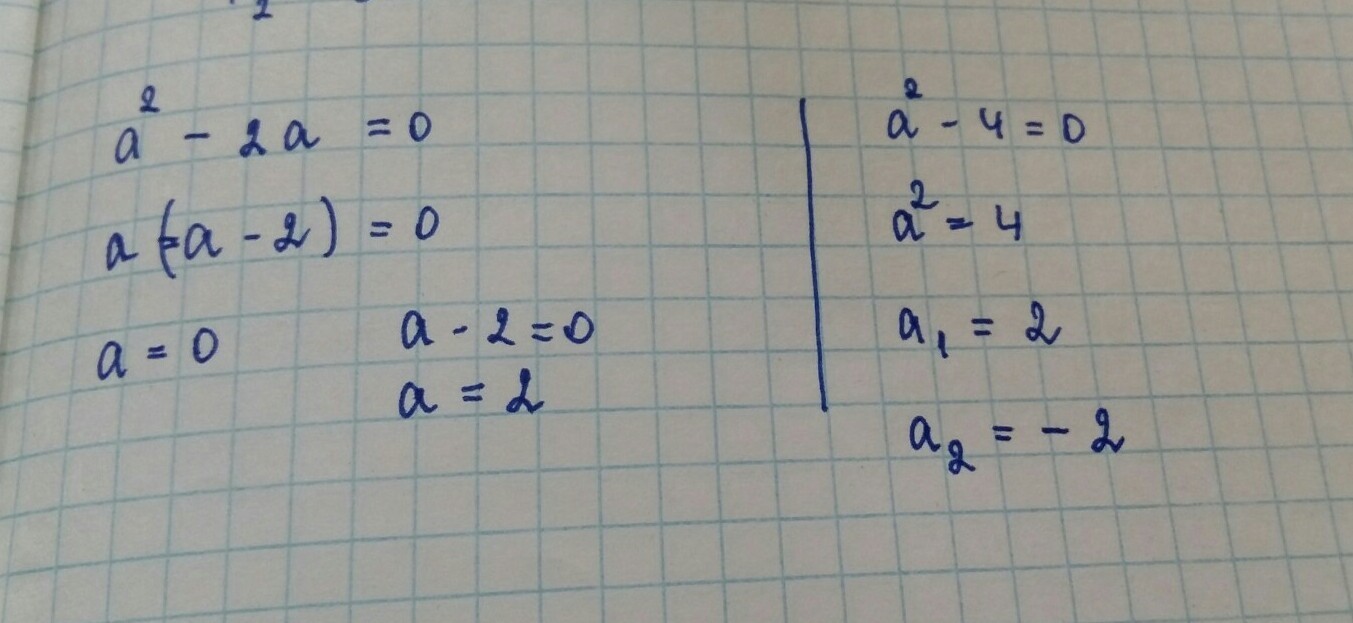 a² - 2a = 0
a(a - 2) = 0
a = 0
a - 2 = 0
a = 2
a² - 4 = 0
a² = 4
a₁ = 2
a₂ = - 2